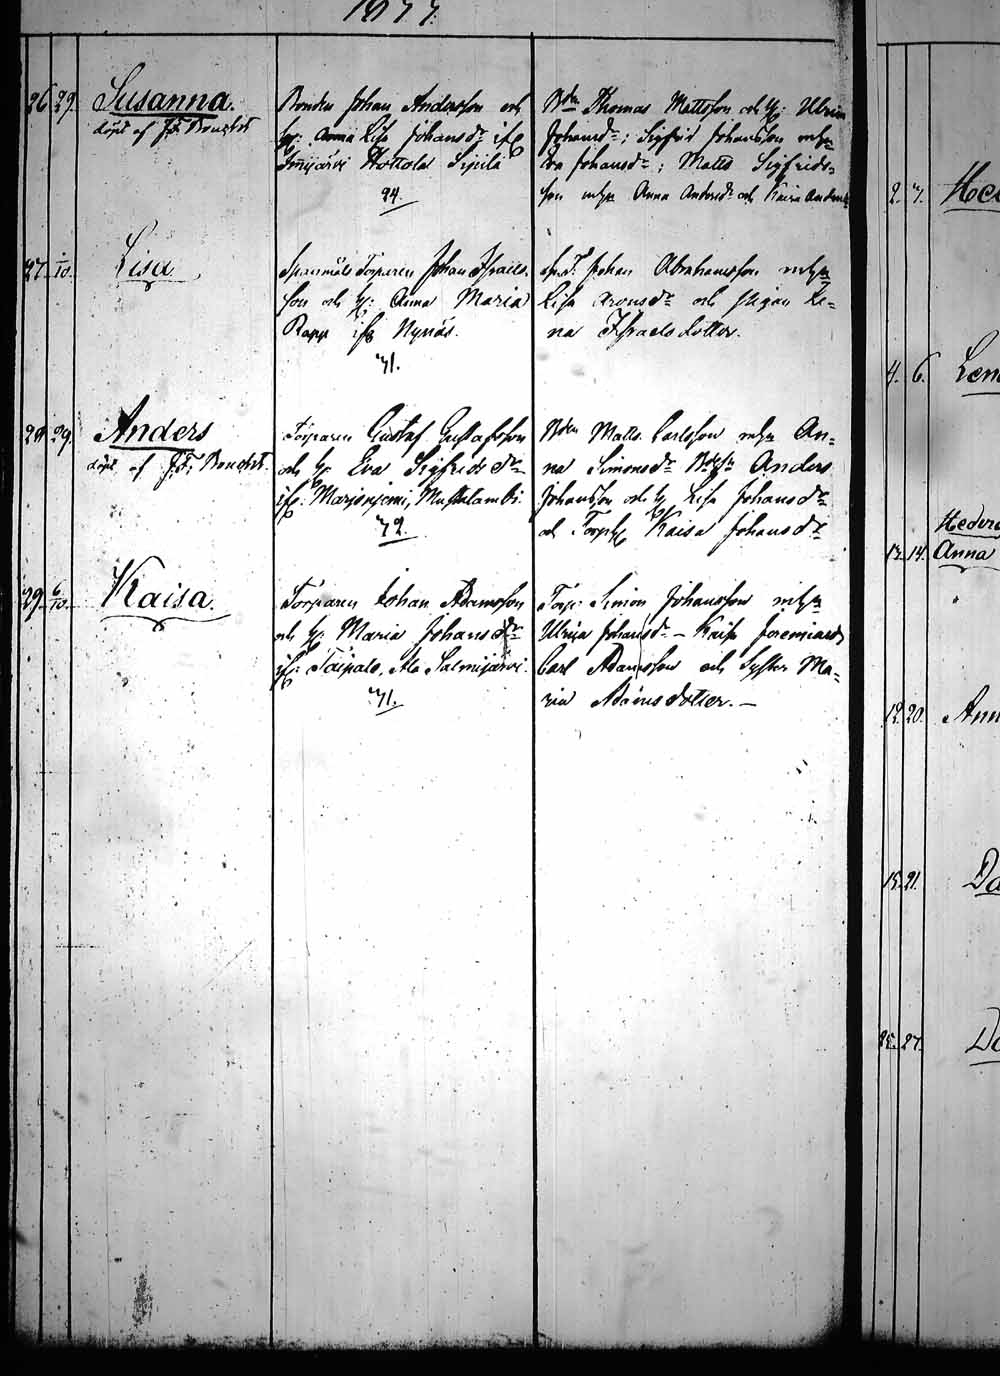 1877.
26 29. Susanna.
döpt af J. F. Bonsdorf
Bonden Johan Andersson och
H: Anna Lisa Johansd:r ifr
Hottola Sipilä
24.
Bdn Thomas Mattsson och H: Ulrica
Johansd:r; Sigfrid Johansson m h
Eva Johansd:r; Matts Sigfrids-
son m h Anna Andersd:r och Kaisa Anders
27. 1/10. Lisa.
Spanmåls Torparen Johan Israels-
son och H: Anna Maria
Rapp ifr Nynäs.
41.
Sp. T. Johan Abrahamsson m h
Lisa Aronsd:r och Pigan Le-
na Israelsdotter.
28 29. Anders
döpt af J. F. Bonsdorf.
Torparen Gustaf Gustafsson
och H. Eva Sigfridsd:r
ifr: Marjoniemi, Mustalambi.
42.
Bden Matts Carlsson m h An-
na Simonsd:r Anders
Johansson och H Lisa Johansd:r
och Kaisa Johansd:r
29. 6/10. Kaisa.
Torparen Johan Adamsson
och H: Maria Johansd:r
ifr: Taipale, Ala Salmijärvi.
41.
Torp: Simon Johansson m h
Ulrica Johansd:r – Kaisa Jeremiasd
Carl Adamsson och Syster Ma-
ria Adamsdotter. –
2. 7. Hed
4. 6. Len
Hedvi
13. 14. Anna
12. 20. Ann
15. 21. Da
25. 27. Da